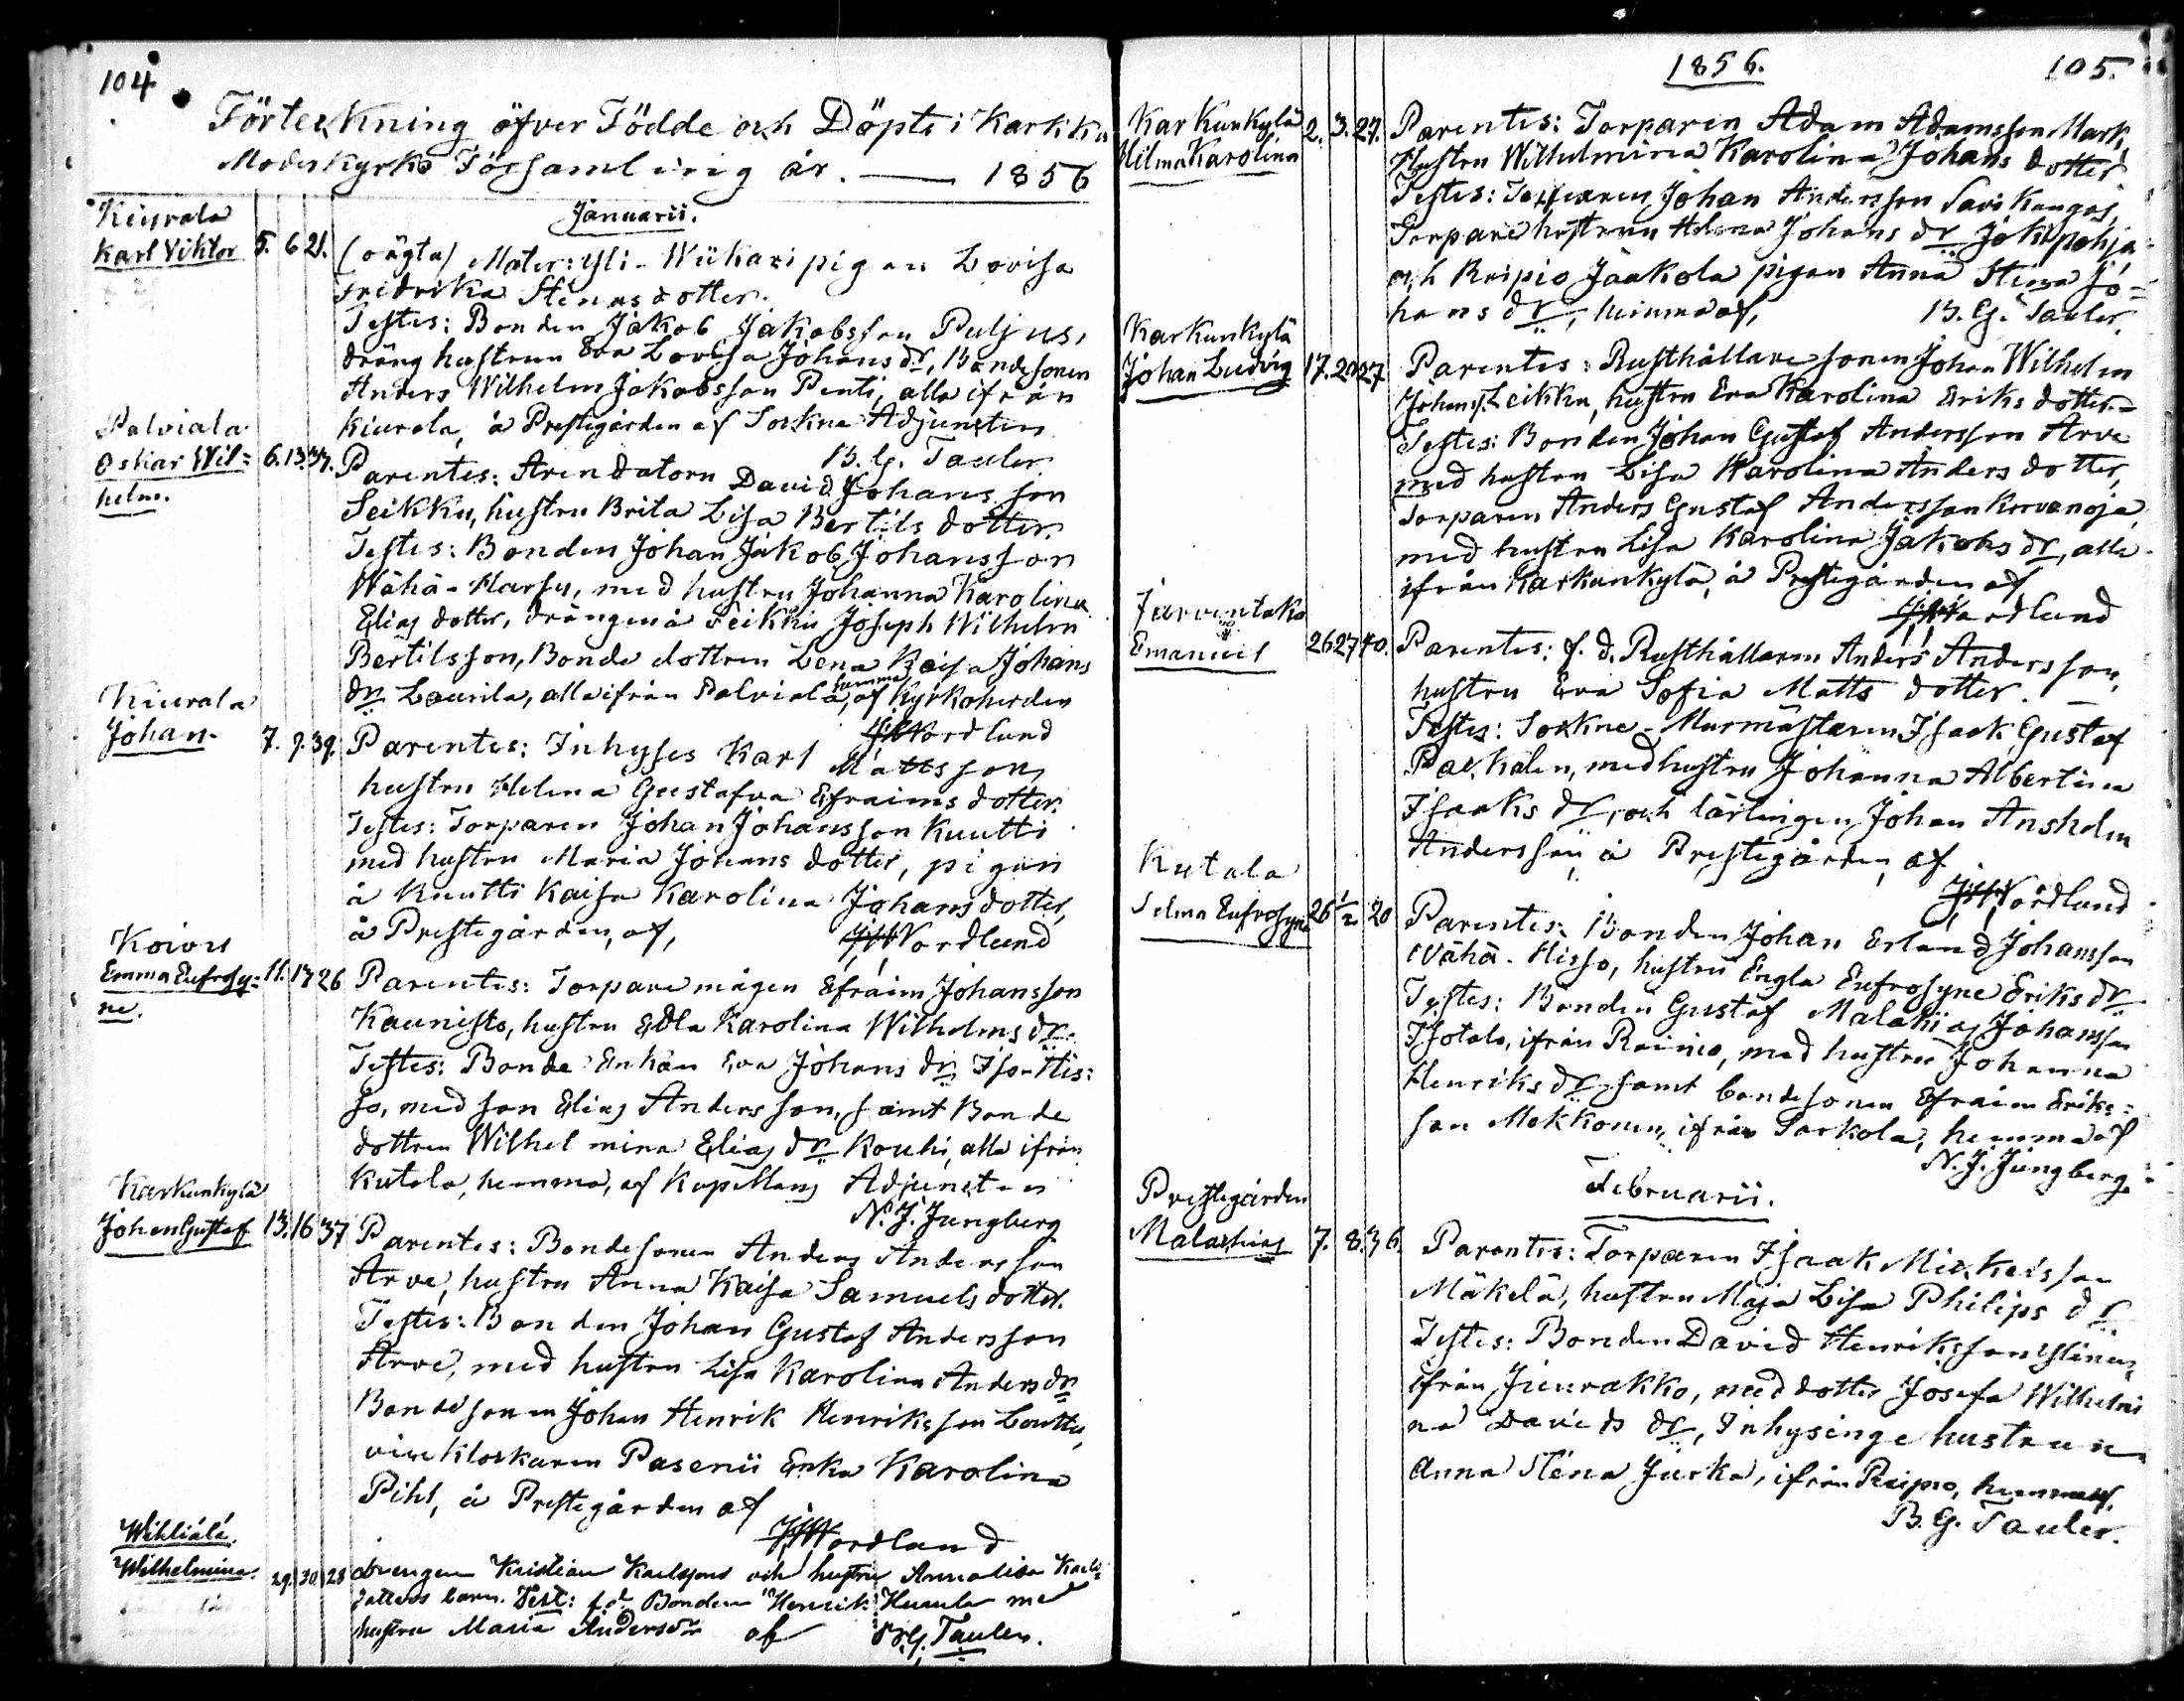 104
Förteckning öfver Födde och Döpte i Karkku
Moderkyrko Församling år. — 1856
Januarii.
Kiurala
Karl Viktor 5. 6 21. (oägta) Mater: Yli-Wiikari pigan Lovisa
Fredrika Stenasdotter.
Testes: Bonden Jakob Jakobsson Puljus,
dräng hustrun Eva Lovisa Johans dr, Bondesonen
Anders Wilhelm Jakobsson Penti, alla ifrån
Kiurala, å Prestegården af Sockne Adjuncten
B. G. Tauler.
Palviala
Oskar Wil=
helm. 6. 13. 37. Parentes: Arendatorn David Johansson
Seikku, hustru Brita Lisa Bertils dotter.
Testes: Bonden Johan Jakob Johansson
Wähä-Marsu, med hustru Johanna Karolina
Elias dotter, drängen å Seikku Joseph Wilhelm
Bertilsson, Bonde dottren Lena Kaisa Johans
dr Laurila, alla ifrån Palviala, af Kyrkoherden
Nordlund
Kiurala
Johan. 7. 9. 39. Parentes: Inhyses Karl Mattsson,
hustru Helena Gustafva Efraims dotter.
Testes: Torparen Johan Johansson Kuutti
med hustru Maria Johans dotter, pigan
å Kuutti Kaisa Karolina Johans dotter,
å Prestegården, af, Nordlund
Koivu
Emma Eufrosy=
ne. 11. 17 26 Parentes: Torpare mågen Efraim Johansson
Kaunisto, hustru Edla Karolina Wilhelms dr.
Testes: Bonde Enkan Eva Johans dr Iso-His=
so, med son Elias Andersson, samt Bonde
dottren Wilhelmina Elias dr Kouhi, alla ifrån
Kutala, hemma, af Kapellans Adjuncten
N. J. Jungberg
Karkunkylä
Johan Gustaf 13. 16 37 Parentes: Bondesonen Anders Andersson
Arve, hustru Anna Kaisa Samuels dotter.
Testes: Bonden Johan Gustaf Andersson
Arve, med hustru Lisa Karolina Anders dr
Bondesonen Johan Henrik Henriksson Louttu,
vice klockaren Pasenii Enka Karolina
Pihl, å Prestegården af
Nordlund
Wihliälä.
Wilhelmina. 29. 30. 28 Drengen Kristian Karlsons och hustru Annalisa Karls
dotters barn. Test: f.d. Bonden Henrik med
hustru Maria Andersdr af B.G. Tauler.
1856. 105.
Karkunkylä
Hilma Karolina 2. 3. 27. Parentes: Torparen Adam Adamsson Mark,
Hustru Wilhelmina Karolina Johans dotter.
Testes: Torparen Johan Andersson Savikangas,
Torpare hustrun Helena Johans dr Jokipohja
och Reipio Jaakola pigan Anna Stina Jo=
hans dr, hemma af, B. G. Tauler.
Karkunkylä
Johan Ludvig 17. 20 27 Parentes: Rusthållare sonen Johan Wilhelm
Johanss. Leikku, hustru Eva Karolina Eriks dotter.
Testes: Bonden Johan Gustaf Andersson Arve
med hustru Lisa Karolina Anders dotter,
Torparen Anders Gustaf Andersson Korvenoja,
med hustru Lisa Karolina Jakobs dr, alla
ifrån Karkunkylä, å Prestegården af
Nordlund
Järventaka
Emanuel 26 27 40. Parentes: f. d. Rusthållaren Anders Andersson,
hustru Eva Sofia Matts dotter. —
Testes: Sockne-Murmästaren Isaak Gustaf
Packalen, med hustru Johanna Albertina
Isaaks dr, och lärlingen Johan Anshelm
Andersson, å Prestegården, af
Nordlund
Kutala
Selma Eufrosyne 26 1/2 20 Parentes: Bonden Johan Erland Johansson
Wähä-Hisso, hustru Engla Eufrosyne Eriks dr
Testes: Bonden Gustaf Malakias Johansson
Isotalo, ifrån Rainio, med hustru Johanna
Henriks dr samt bondesonen Efraim Eriks=
son Mokkonen, ifrån Sarkola, hemma af
N. J. Jungberg.
Februarii.
Prestegården
Malachias 7. 8. 36. Parentes: Torparen Isaak Mickelsson
Mäkelä, hustru Maja Lisa Philips dr
Testes: Bonden David Henriksson Ylinen,
ifrån Jieurakko, med dotter Josefa Wilhelmi
na Davids dr, Inhysinge hustrun
Anna Stena Jurka, ifrån Reipio, hemma af,
B. G. Tauler.